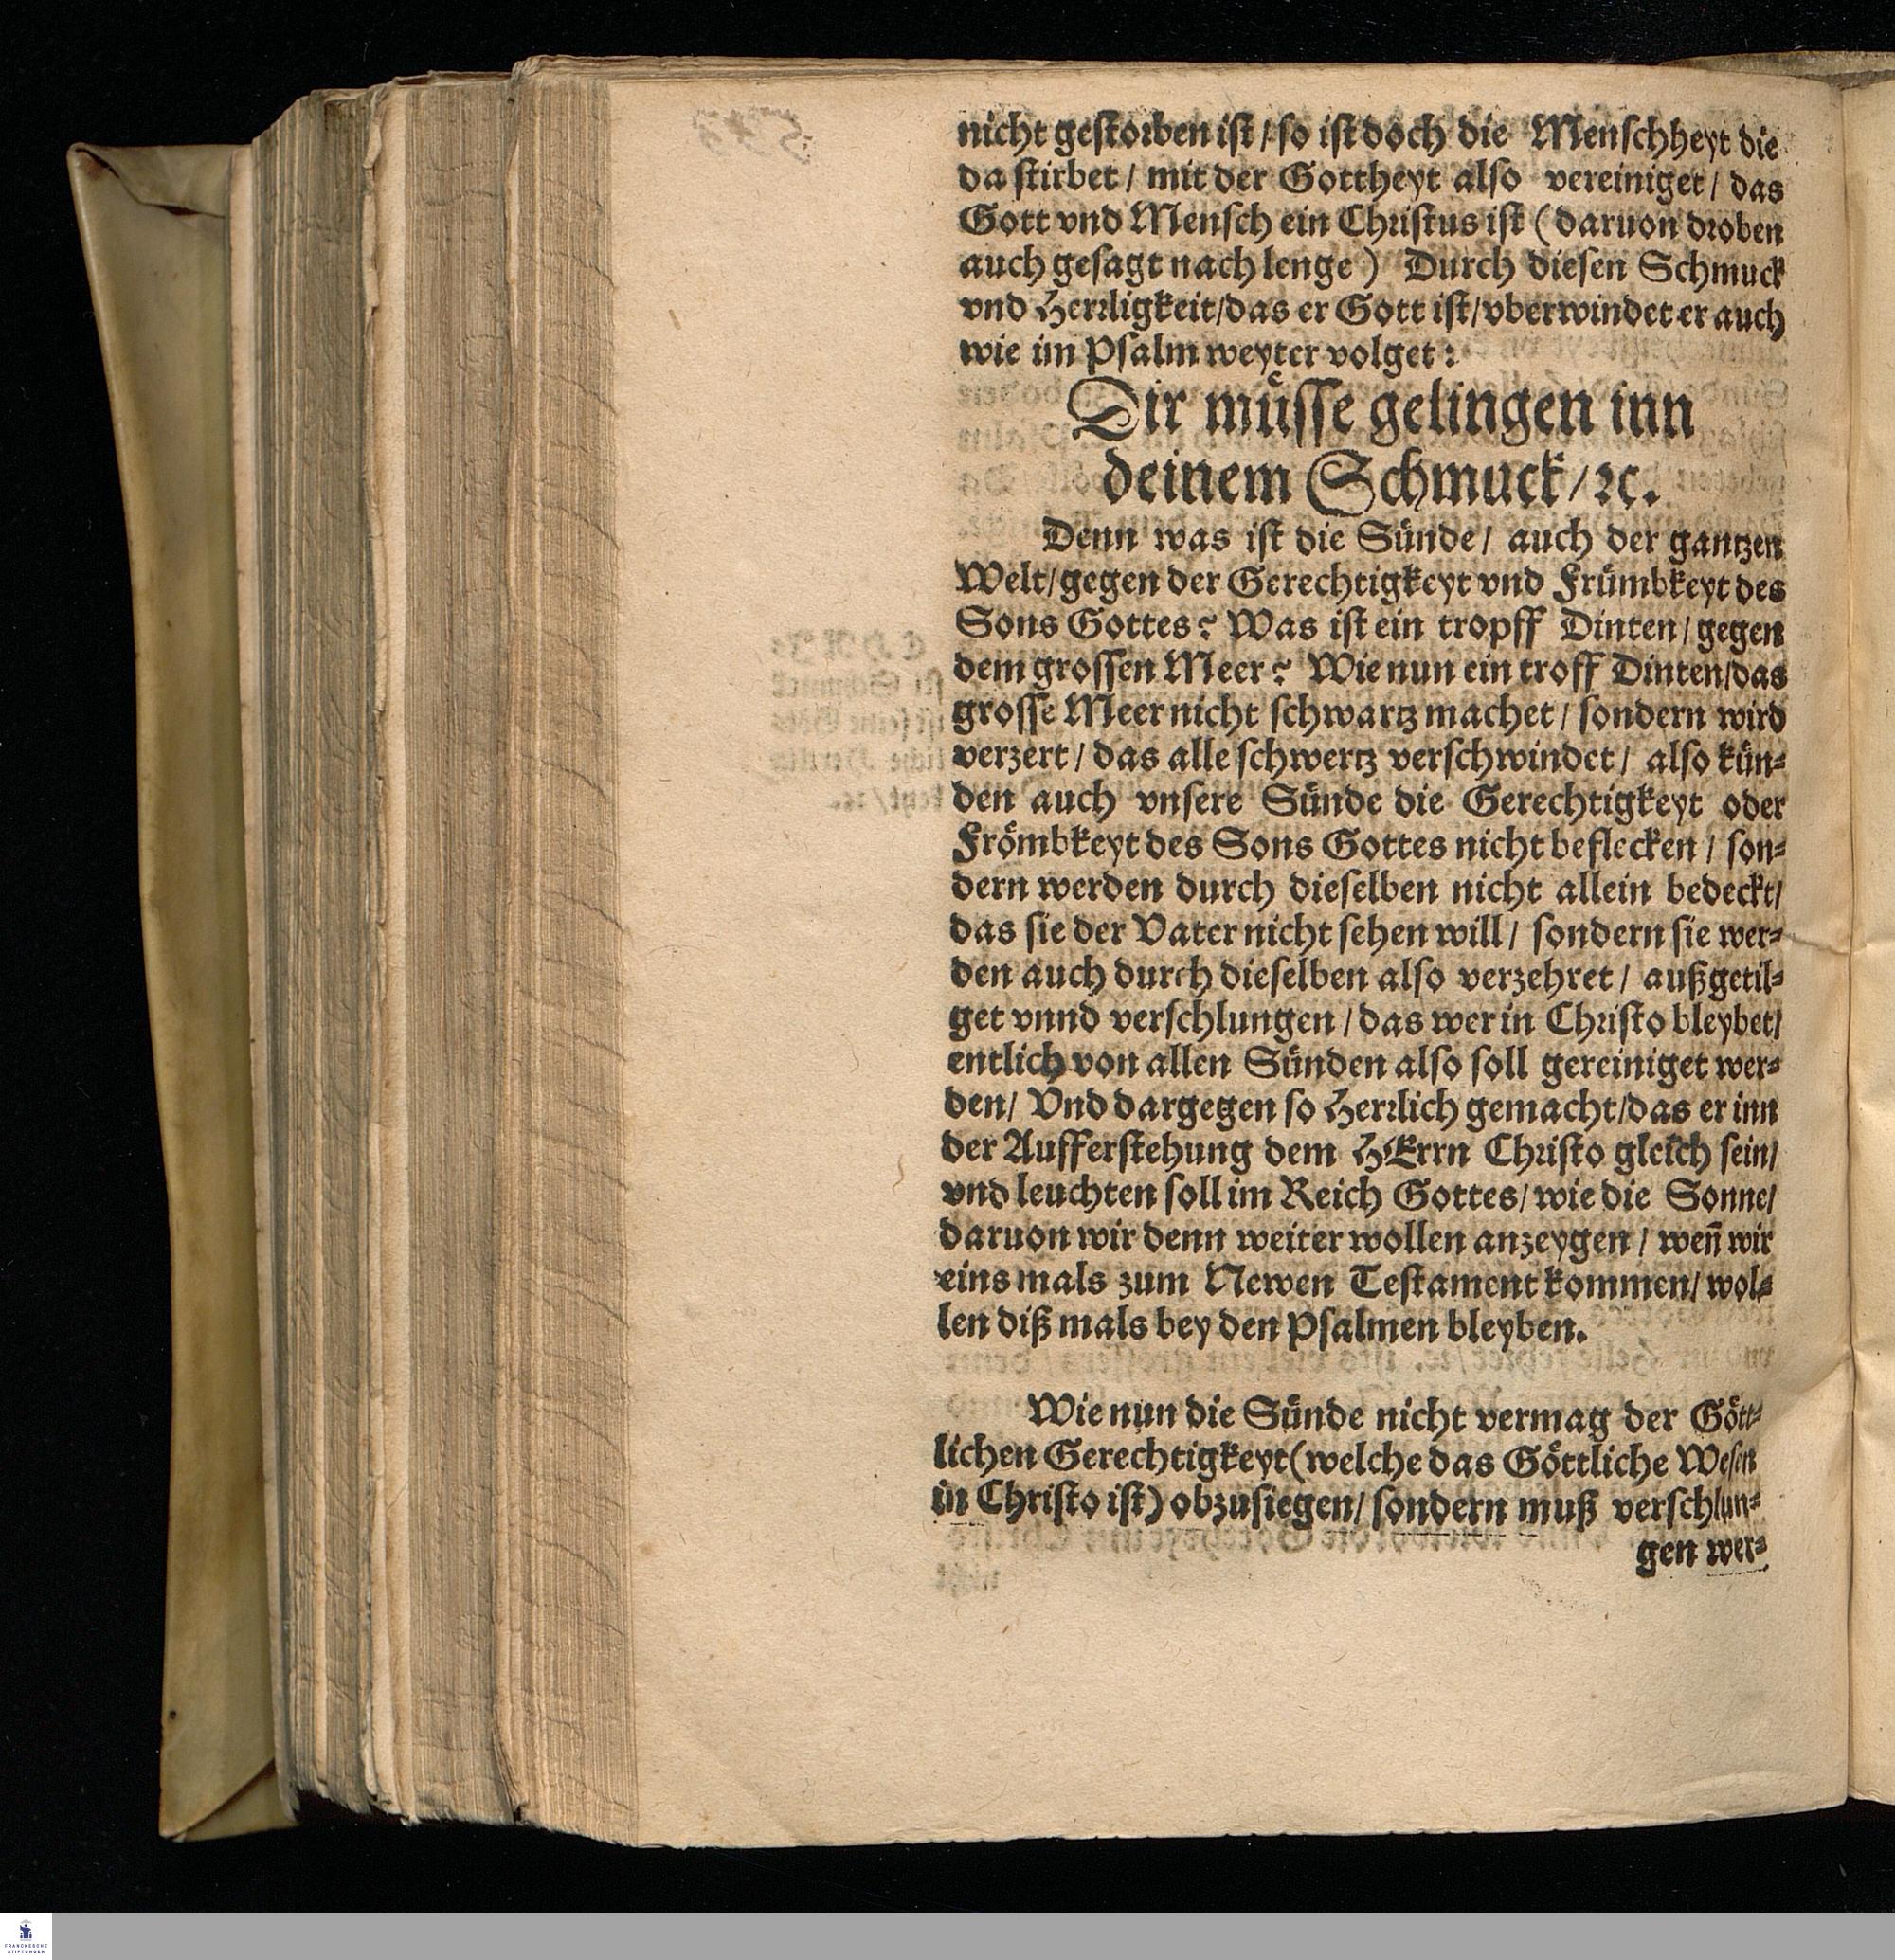 nicht gestorben ist / so ist doch die Menschheyt die
da stirbet / mit der Gottheyt also vereiniget / das
Gott vnd Mensch ein Christus ist (daruon droben
auch gesagt nach lenge) Durch diesen Schmuck
vnd Herrligkeit/das er Gott ist/vberwindet er auch
wie im Psalm weyter volget:
Dir müsse gelingen inn
deinem Schmuck / ꝛc.
Denn was ist die Sünde / auch der gantzen
Welt/gegen der Gerechtigkeyt vnd Frümbkeyt des
Sons Gottes? Was ist ein tropff Dinten / gegen
dem grossen Meer? Wie nun ein troff Dinten/das
grosse Meer nicht schwartz machet / sondern wird
verzert / das alle schwertz verschwindet / also kün⸗
den auch vnsere Sünde die Gerechtigkeyt oder
Frömbkeyt des Sons Gottes nicht beflecken / son⸗
dern werden durch dieselben nicht allein bedeckt/
das sie der Vater nicht sehen will / sondern sie wer⸗
den auch durch dieselben also verzehret / außgetil⸗
get vnnd verschlungen / das wer in Christo bleybet/
entlich von allen Sünden also soll gereiniget wer⸗
den/ Vnd dargegen so Herrlich gemacht/das er inn
der Aufferstehung dem HErrn Christo gleich sein/
vnd leuchten soll im Reich Gottes/wie die Sonne/
daruon wir denn weiter wollen anzeygen / weñ wir
eins mals zum Newen Testament kommen/ wol⸗
len diß mals bey den Psalmen bleyben.
Wie nun die Sünde nicht vermag der Gött⸗
lichen Gerechtigkeyt (welche das Göttliche Wesen
in Christo ist) obzusiegen/ sondern muß verschlun⸗
gen wer⸗
FRANCKESCHE
STIFTUNGEN